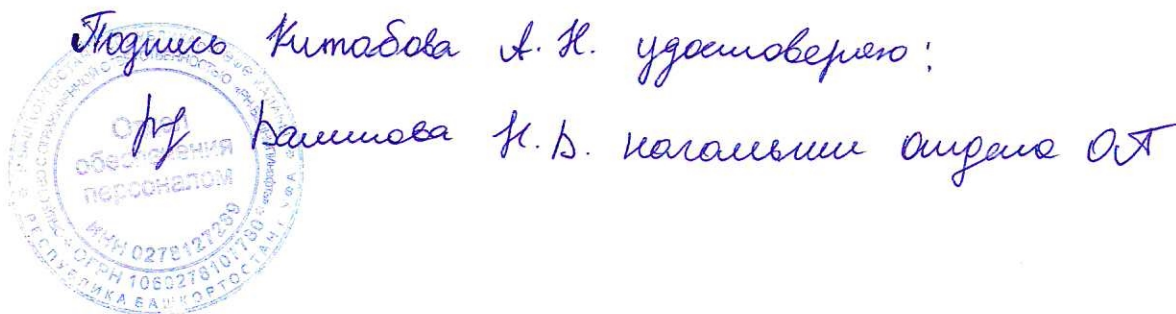 Подпись Китабова А. Н. удостоверяю:
Н. В. начальник отдела ОП
Отдел
обеспечения
персоналом
ИНН 0278127289
ОГРН 1060278107780
РЕСПУБЛИКА БАШКОРТОСТАН